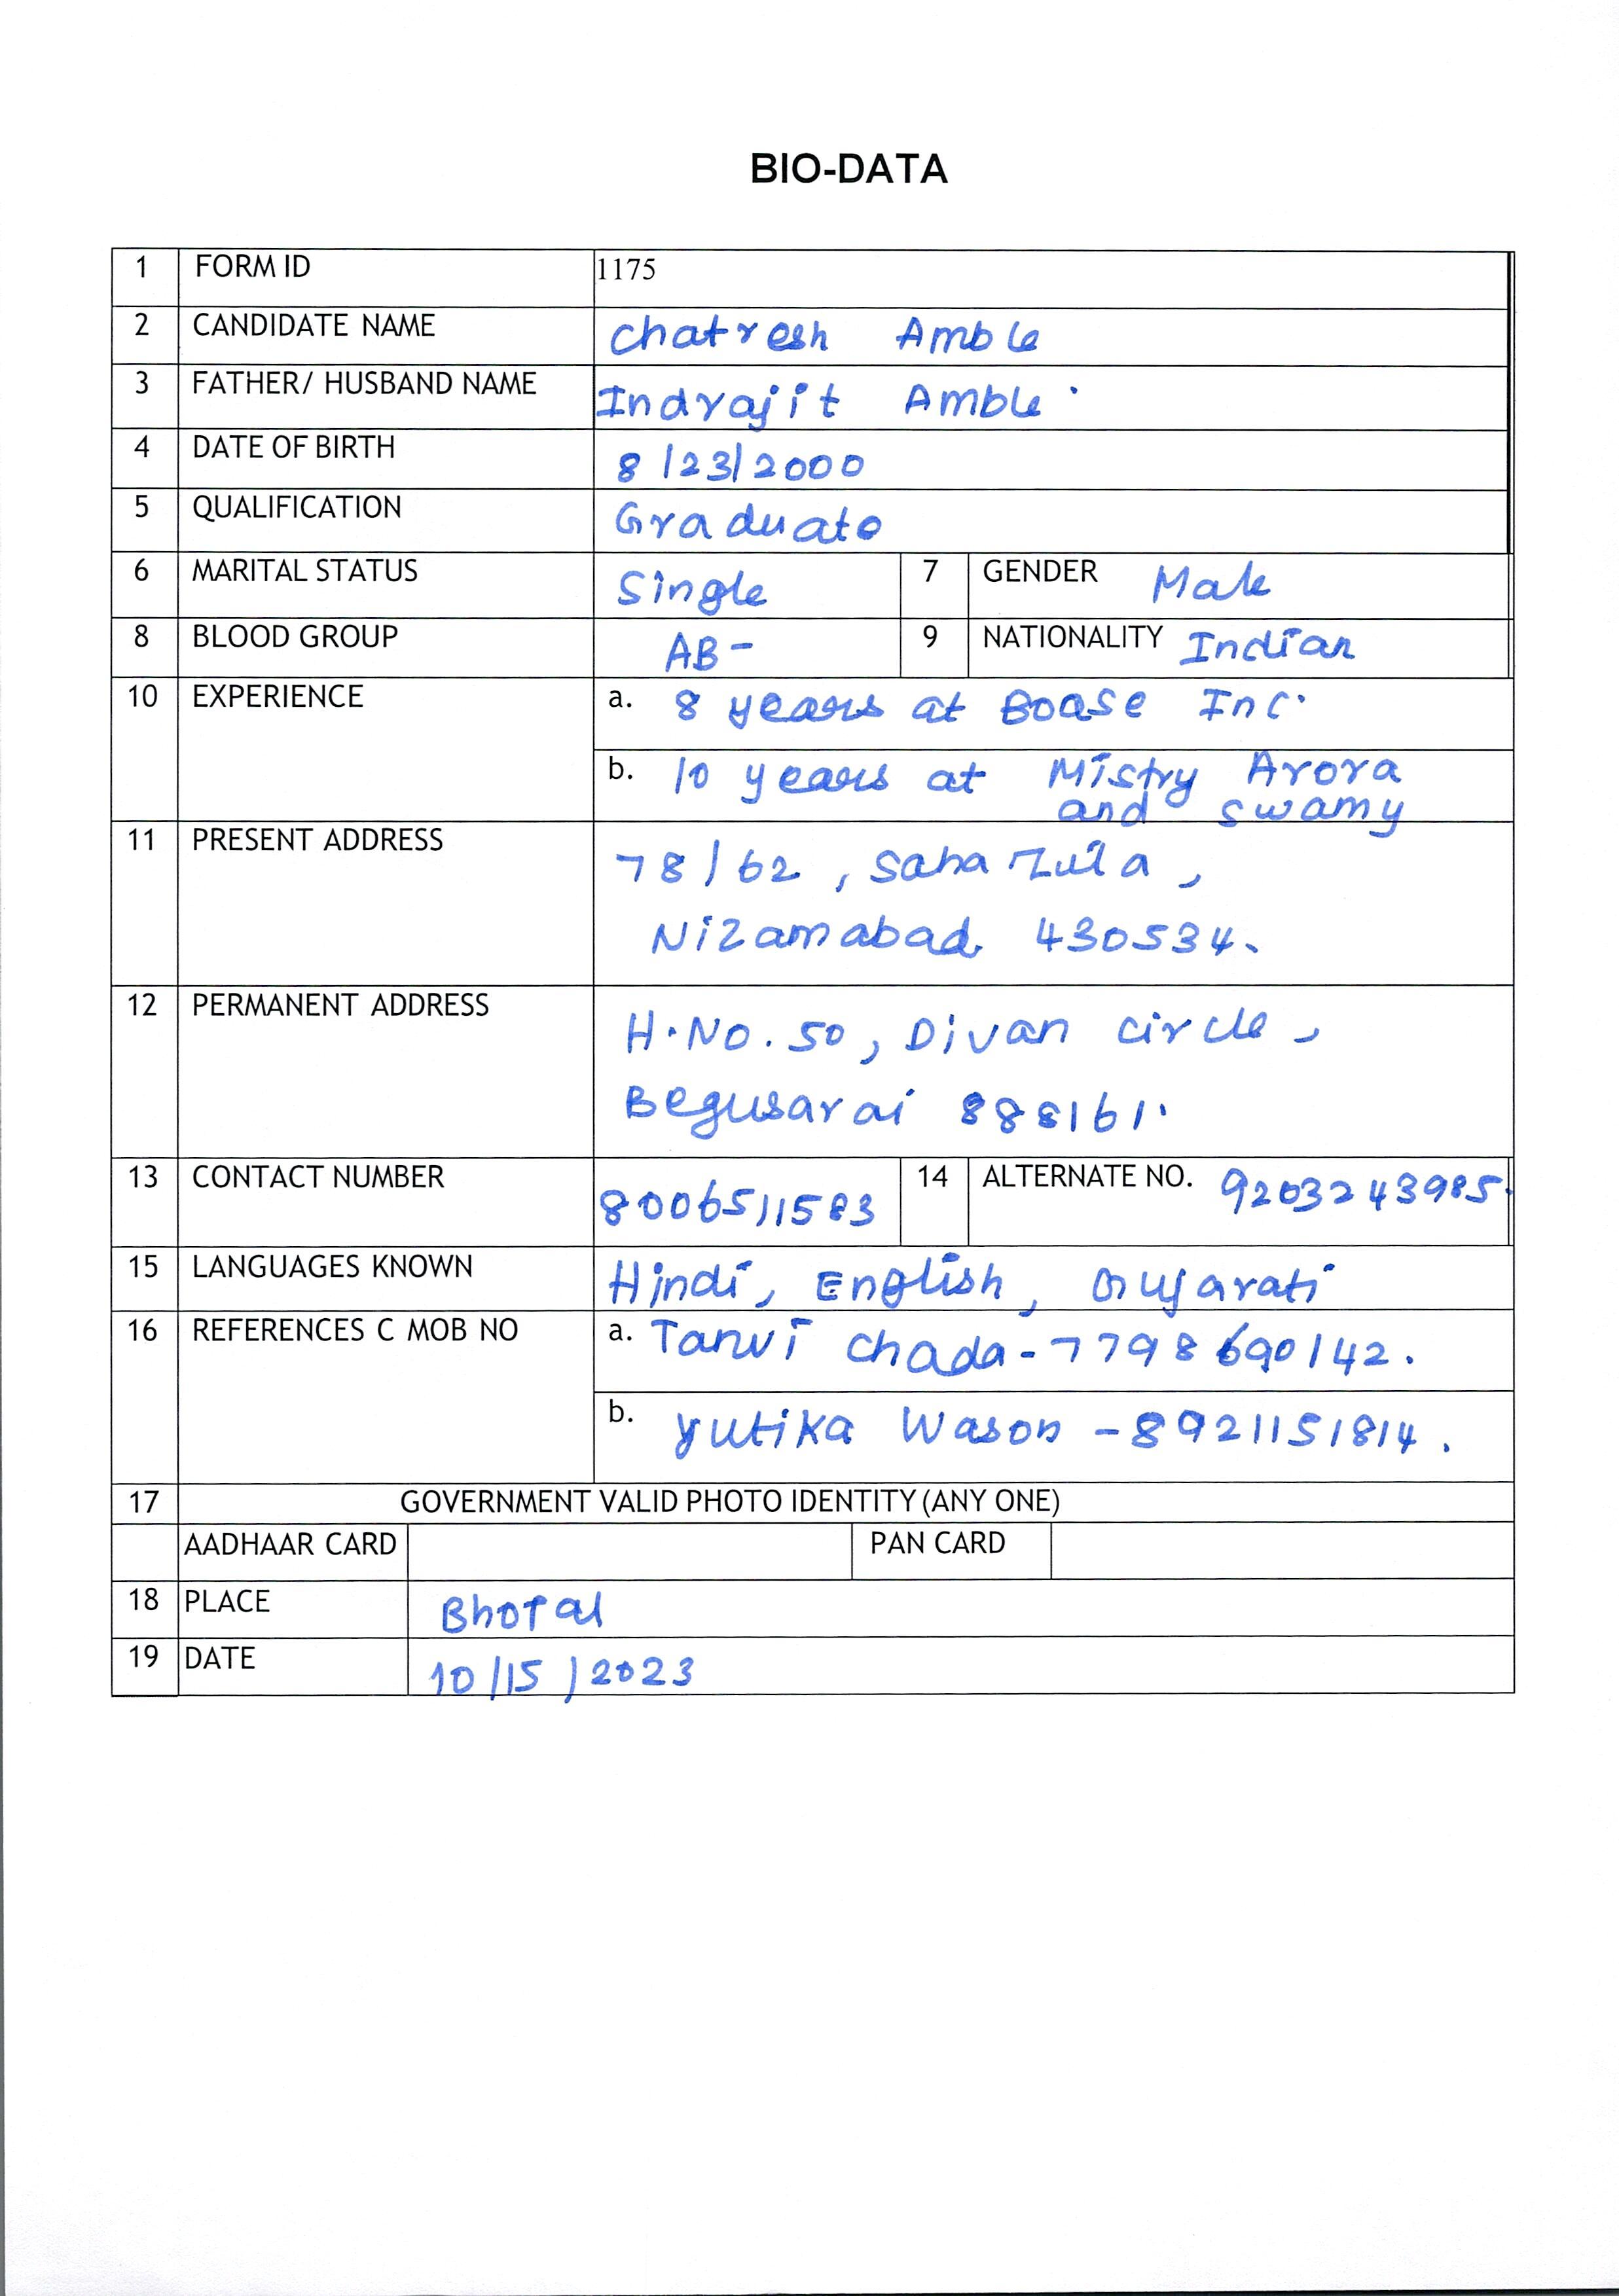 BIO-DATA
1 FORM ID 1175
2 CANDIDATE NAME Chatresh Amble
3 FATHER/ HUSBAND NAME Indrajit Amble
4 DATE OF BIRTH 8/23/2000
5 QUALIFICATION Graduate
6 MARITAL STATUS Single 7 GENDER Male
8 BLOOD GROUP AB- 9 NATIONALITY Indian
10 EXPERIENCE a. 8 years at Boase Inc.
b. 10 years at Mistry Arora
and Swamy
11 PRESENT ADDRESS 78/62, Saha Zula,
Nizamabad 430534.
12 PERMANENT ADDRESS H.No. 50, Divan Circle,
Begusarai 888161.
13 CONTACT NUMBER 8006511583 14 ALTERNATE NO. 9203243985.
15 LANGUAGES KNOWN Hindi, English, Gujarati
16 REFERENCES C MOB NO a. Tanvi Chada - 7798690142.
b. Yutika Wason - 8921151814.
17 GOVERNMENT VALID PHOTO IDENTITY (ANY ONE)
AADHAAR CARD PAN CARD
18 PLACE Bhopal
19 DATE 10/15/2023